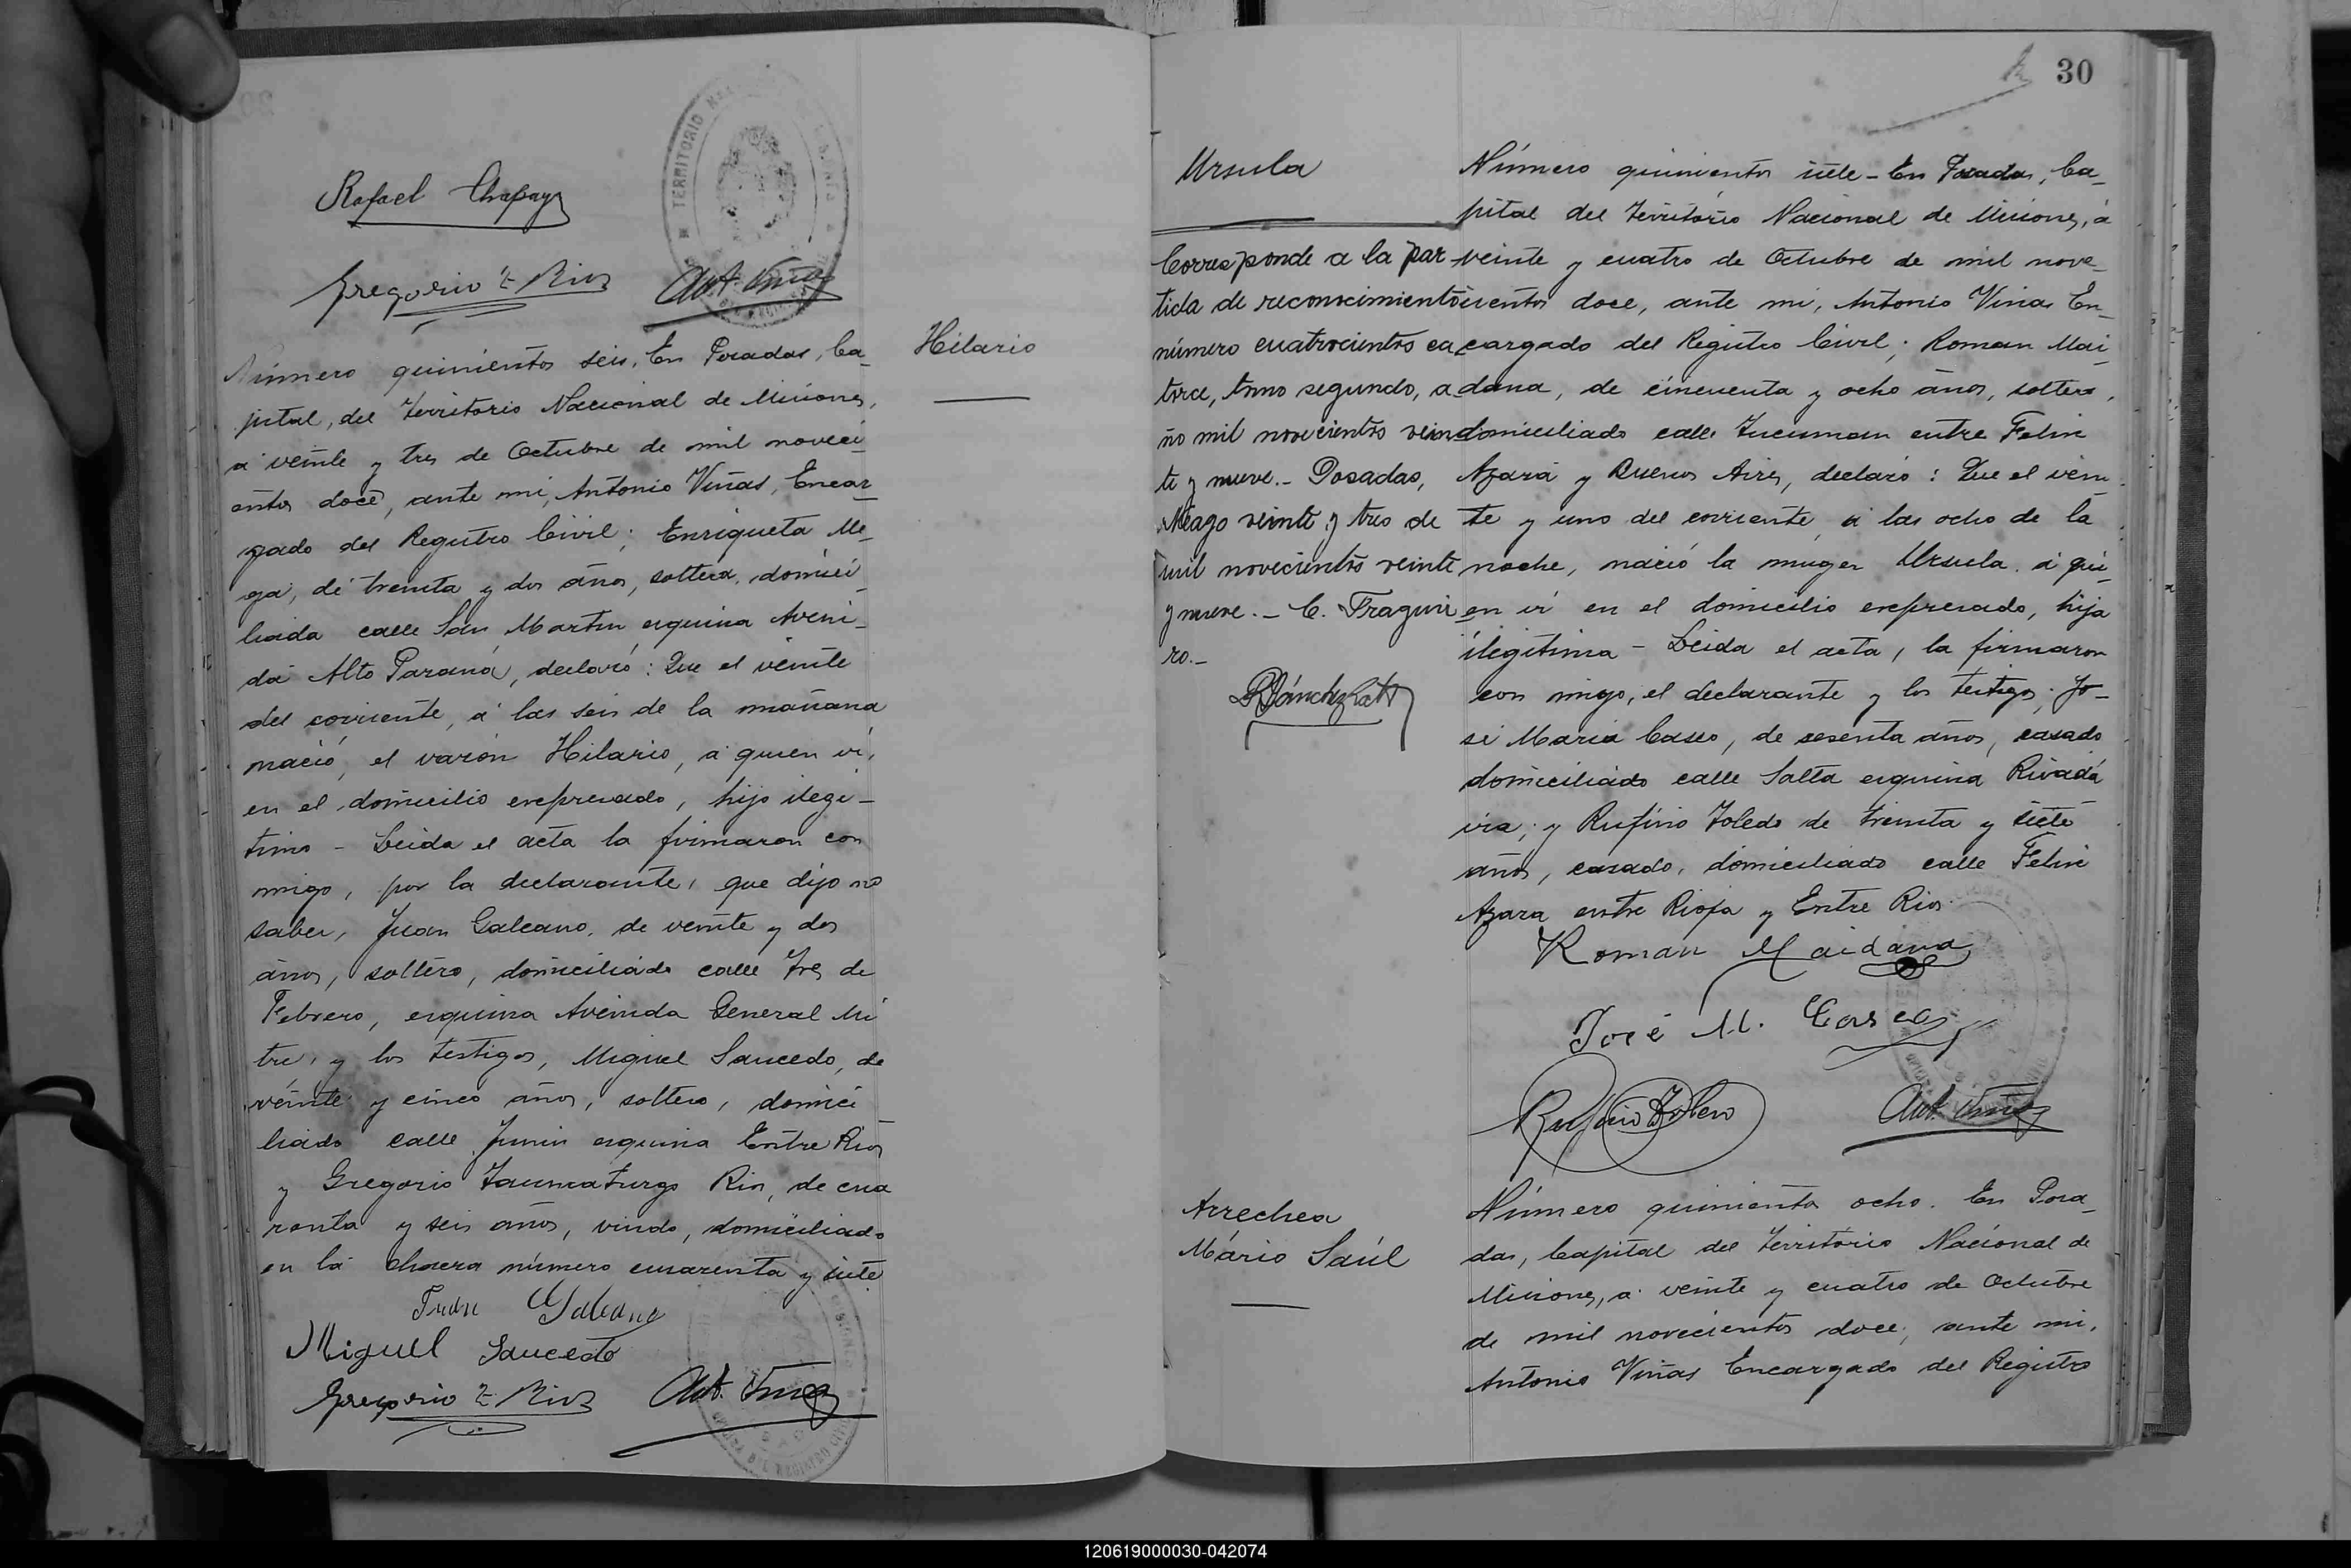 Rafael Chapay
Gregorio T. Rios Ant. Viñas
TERMITORIO
Número quinientos seis, En Posadas, Ca-
pital, del Territorio Nacional de Misiones,
a veinte y tres de Octubre de mil noveci-
entos doce, ante mi, Antonio Viñas, Encar-
gado del Registro Civil; Enriqueta Me-
ga, de treinta y dos años, soltera, domici-
liada calle San Martin esquina Aveni-
da Alto Paraná, declaró: Que el veinte
del corriente, á las seis de la mañana
nació, el varón Hilario, a quien ví,
en el domicilio expresado, hijo ilegi-
timo – Leida el acta la firmaron con
migo, por la declarante, que dijo no
saber, Juan Galeano, de veinte y dos
años, soltero, domiciliado calle Tres de
Febrero, esquina Avenida General Mi
tre, y los testigos, Miguel Saucedo, de
veinte y cinco años, soltero, domici
liado calle Junin esquina Entre Rios
y Gregorio Taumaturgo Rios, de cua
renta y seis años, viudo, domiciliado
en la chacra número cuarenta y siete
Juan Galeano
Miguel Saucedo
Gregorio T. Rios Ant. Viñas
Hilario
30
Ursula
Corresponde a la par
tida de reconocimiento
número cuatrocientos ca
torce, tomo segundo, a
ño mil novecientos vein
te y nueve.- Posadas,
Mayo veinte y tres de
mil novecientos veinte
y nueve.- C. Fragui
ro.-
Número quinientos siete – En Posadas, Ca-
pital del Territorio Nacional de Misiones, á
veinte y cuatro de Octubre de mil nove-
cientos doce, ante mi, Antonio Viñas En-
cargado del Registro Civil; Roman Mai-
dana, de cincuenta y ocho años, soltero,
domiciliado calle Tucuman entre Felix
Azara y Buenos Aires, declaró: Que el vein
te y uno del corriente, á las ocho de la
noche, nació la muger Ursula, á qui-
en ví en el domicilio expresado, hija
ilegitima – Leida el acta, la firmaron
con migo, el declarante y los testigos; Jo-
sé Maria Casco, de sesenta años, casado
domiciliado calle Salta esquina Rivada
via; y Rufino Toledo de treinta y siete
años, casado, domiciliado calle Felix
Azara entre Rioja y Entre Rios.
Roman Maidana
José M. Casco
Rufino Toledo Ant. Viñas
Arrechea
Mário Saúl
Número quinientos ocho. En Posa-
das, Capital del Territorio Nacional de
Misiones, a veinte y cuatro de Octubre
de mil novecientos doce; ante mi,
Antonio Viñas Encargado del Registro
120619000030-042074